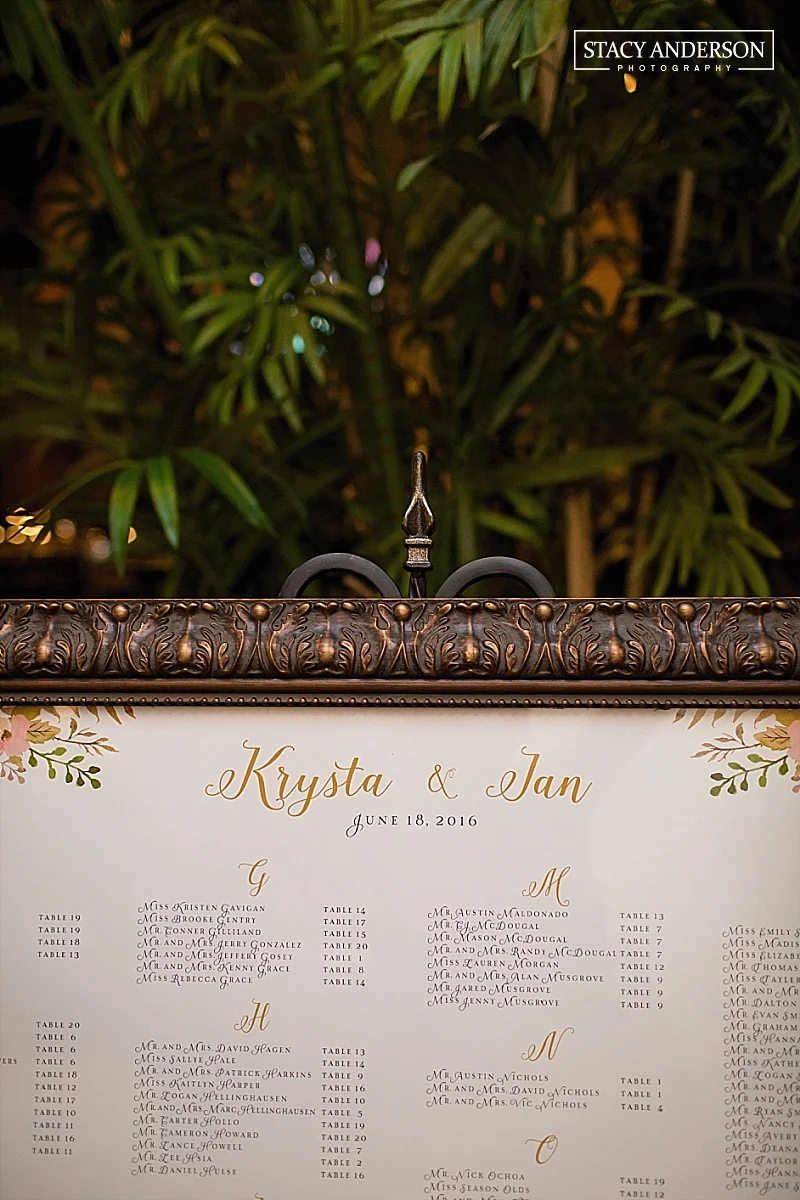 STACY ANDERSON
PHOTOGRAPHY
Krysta & Jan
JUNE 18, 2016
TABLE 19
TABLE 19
TABLE 18
TABLE 13
TABLE 20
TABLE 6
TABLE 6
TABLE 6
TABLE 18
TABLE 12
TABLE 17
TABLE 10
TABLE 11
TABLE 16
TABLE 11
G
MISS KRISTEN GAVIGAN TABLE 14
MISS BROOKE GENTRY TABLE 17
MR. CONNER GILLILAND TABLE 15
MR. AND MRS. JERRY GONZALEZ TABLE 20
MR. AND MRS. JEFFERY GOSEY TABLE 1
MR. AND MRS. KENNY GRACE TABLE 8
MISS REBECCA GRACE TABLE 14
H
MR. AND MRS. DAVID HAGEN TABLE 13
MISS SALLYE HALE TABLE 14
MR. AND MRS. PATRICK HARKINS TABLE 9
MISS KAITLYN HARPER TABLE 16
MR. LOGAN HELLINGHAUSEN TABLE 10
MR. AND MRS. MARC HELLINGHAUSEN TABLE 5
MR. CARTER HOLLO TABLE 19
MR. CAMERON HOWARD TABLE 20
MR. LANCE HOWELL TABLE 7
MR. LEE HSIA TABLE 2
MR. DANIEL HULSE TABLE 16
M
MR. AUSTIN MALDONADO TABLE 13
MR. CJ MCDOUGAL TABLE 7
MR. MASON MCDOUGAL TABLE 7
MR. AND MRS. RANDY MCDOUGAL TABLE 7
MISS LAUREN MORGAN TABLE 12
MR. AND MRS. ALAN MUSGROVE TABLE 9
MR. JARED MUSGROVE TABLE 9
MISS JENNY MUSGROVE TABLE 9
N
MR. AUSTIN NICHOLS TABLE 1
MR. AND MRS. DAVID NICHOLS TABLE 1
MR. AND MRS. VIC NICHOLS TABLE 4
O
MR. NICK OCHOA TABLE 19
MISS SEASON OLDS TABLE 12
MISS EMILY S
MISS MADIS
MISS ELIZABE
MR. THOMAS
MISS TAYLER
MR. AND MR
MR. DALTON
MR. EVAN SM
MR. GRAHAM
MISS HANNA
MR. AND MR
MISS KATHE
MR. LOGAN S
MR. AND MR
MR. AND MR
MR. RYAN SM
MS. NANCY
MISS AVERY
MRS. DEANA
MR. TAYLOR
MISS HANNA
MISS JANE S